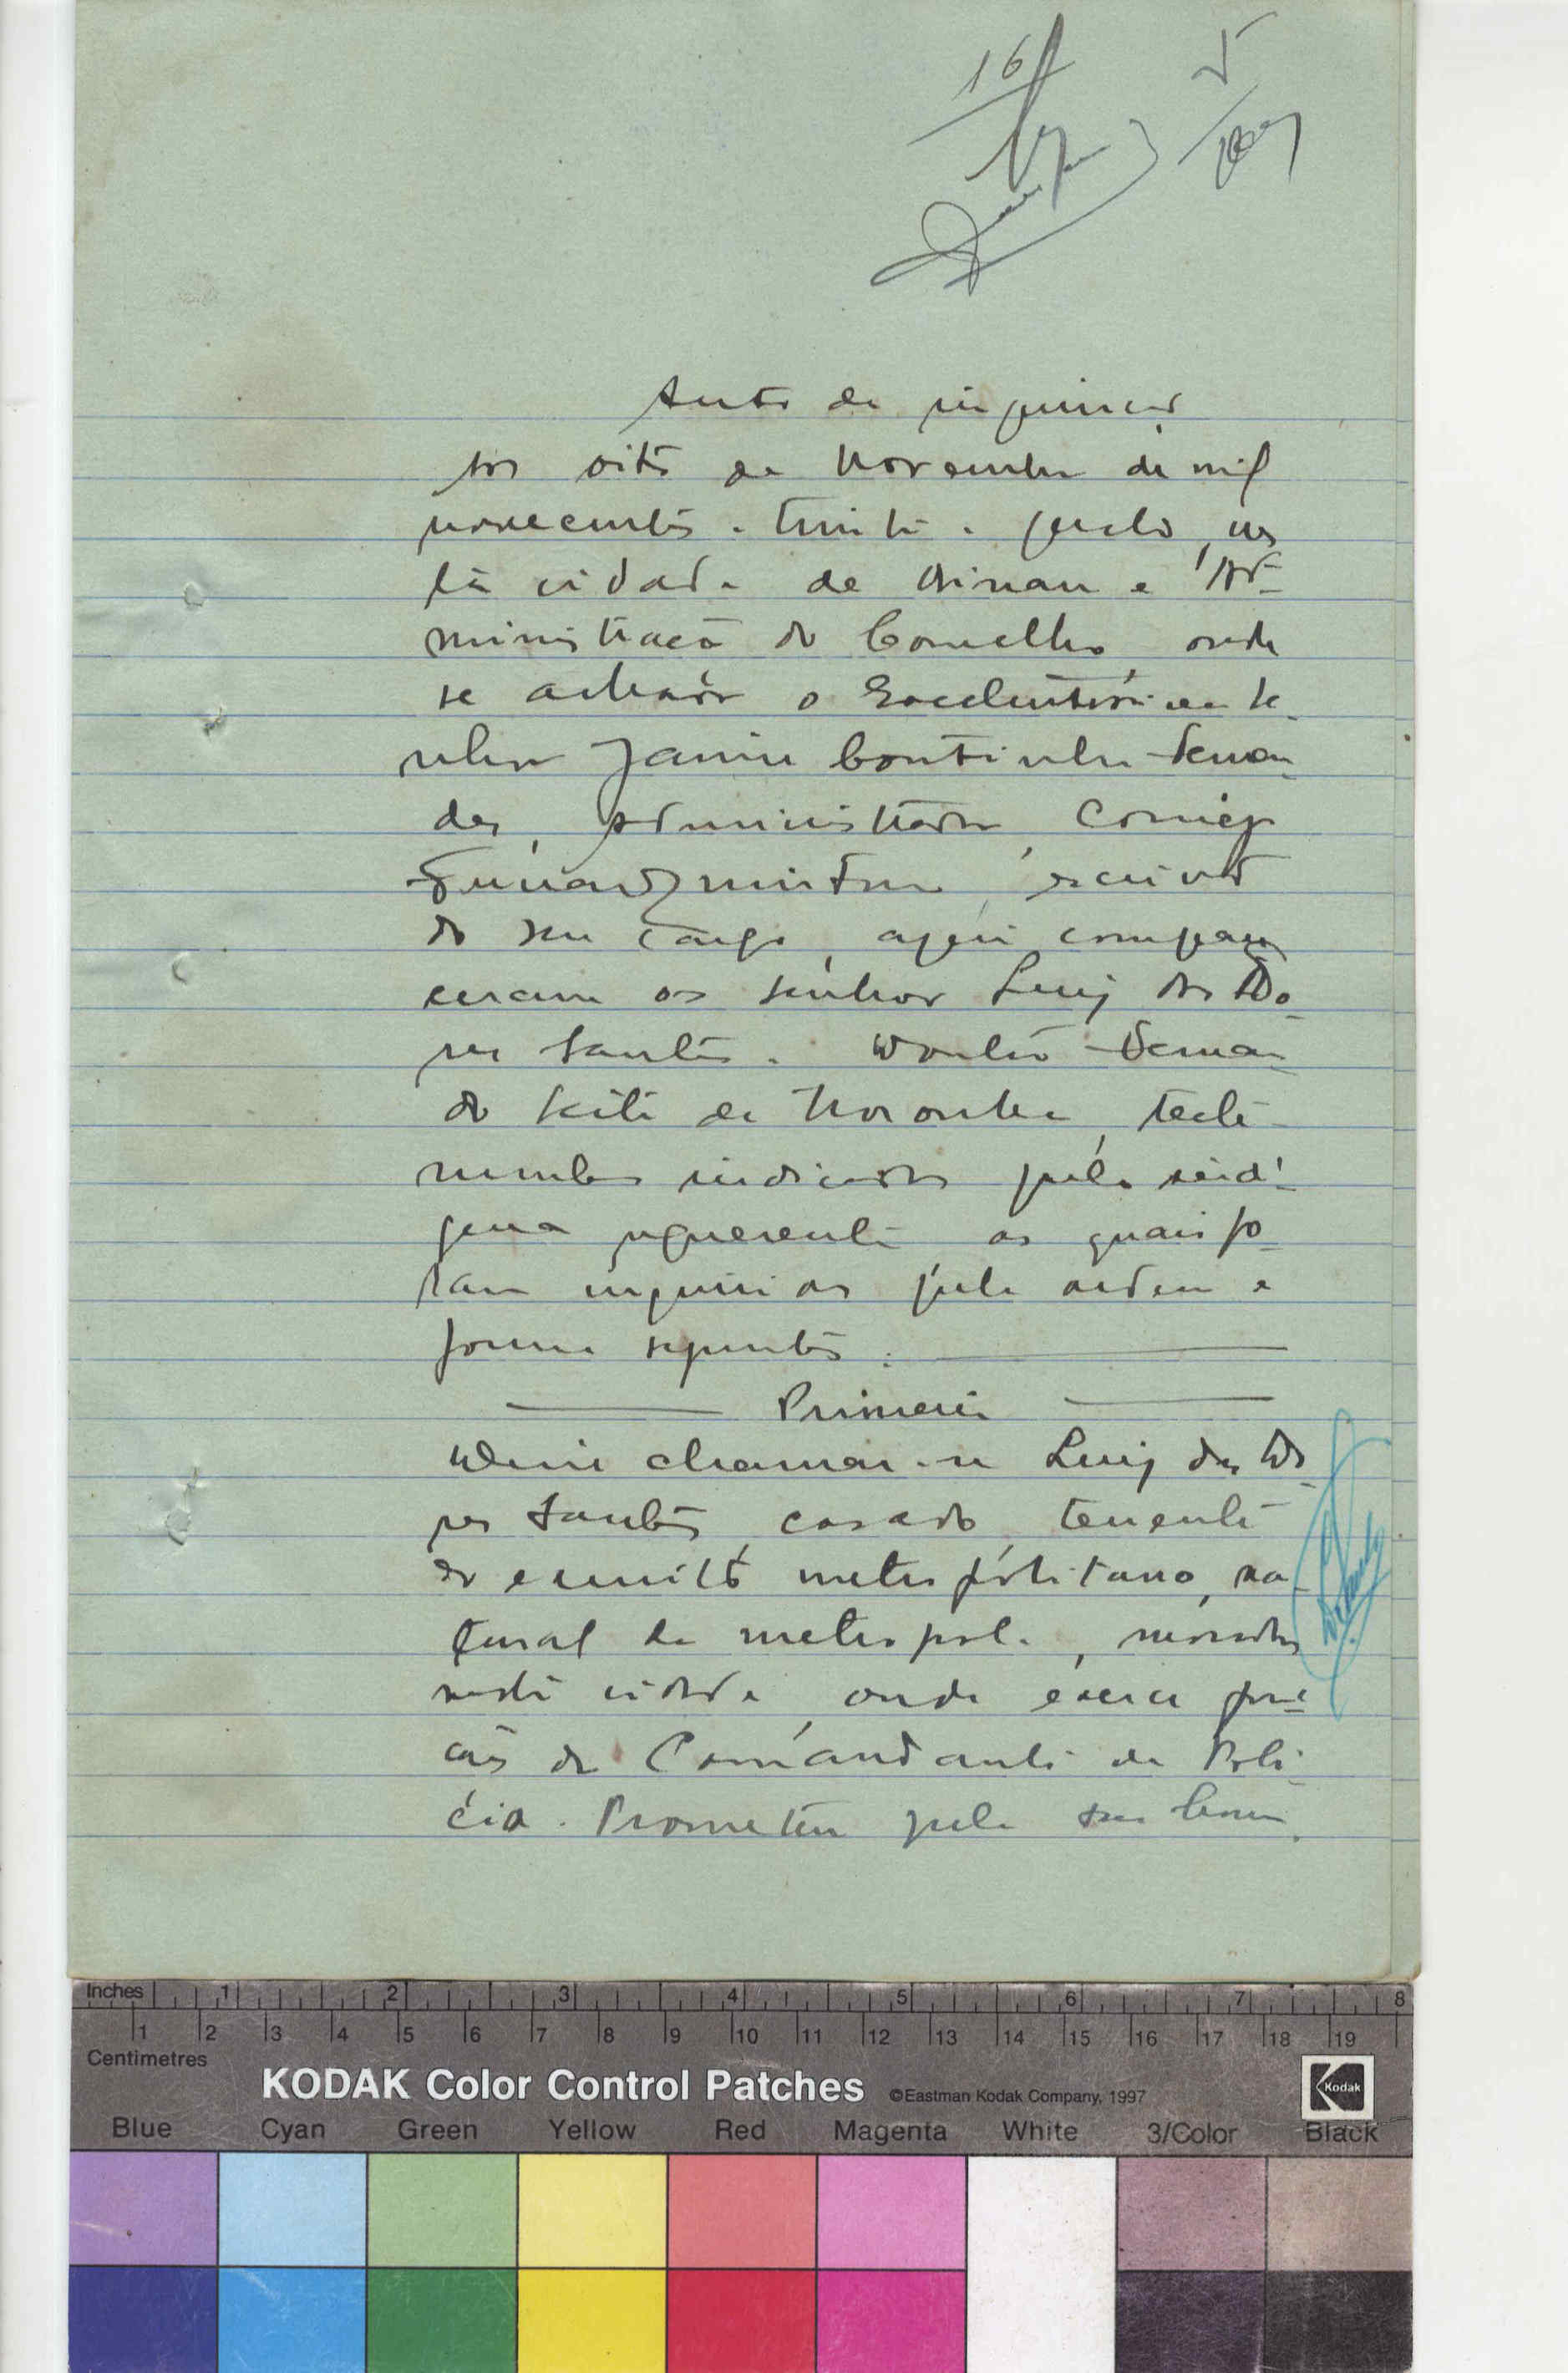 16
5
Auto de inquirição
Aos oito de Novembro de mil
novecentos e trinta e quatro, nes
ta cidade de Bissau e Ad-
ministração do Concelho, onde
se achava o Excelentíssimo Se-
nhor Jaime Coutinho Fernan-
des, Administrador, comigo
escrivão
do seu cargo, aqui compare
ceram os senhor Luiz dos
res Santos e Fernan-
do Leite de Noronha, teste-
munhas indicadas pelo indí-
gena requerente as quais fo-
ram inquiridas pela ordem e
forma seguintes:
Primeira
Disse chamar-se Luiz dos
res Santos, casado, tenente
do exercito metropolitano, na-
tural da metropole, morador
nesta cidade, onde exerce fun-
ções de Comandante da Polí-
cia. Prometeu pela sua honra
Inches 1 2 3 4 5 6 7 8
1 2 3 4 5 6 7 8 9 10 11 12 13 14 15 16 17 18 19
Centimetres
KODAK Color Control Patches ©Eastman Kodak Company, 1997
Kodak
Blue Cyan Green Yellow Red Magenta White 3/Color Black